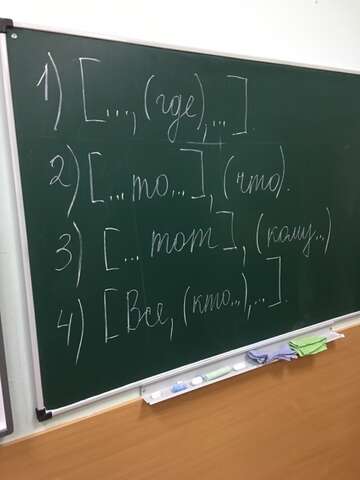 1) [..., (где), ...].
2) [... то, ...], (что).
3) [... тот], (кому...)
4) [Все, (кто...), ...].